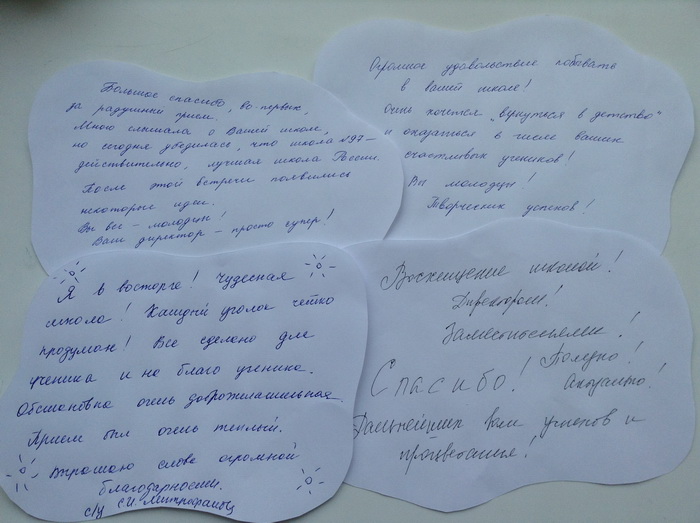 Большое спасибо, во-первых,
за радушный прием.
Много слышала о Вашей школе,
но сегодня убедилась, что школа №97 –
действительно, лучшая школа России.
После этой встречи появились
некоторые идеи.
Вы все – молодцы!
Ваш директор – просто супер!
Огромное удовольствие побывать
в вашей школе!
Очень хочется „вернуться в детство“
и оказаться в числе ваших
счастливых учеников!
Вы молодцы!
Творческих успехов!
Я в восторге! Чудесная
школа! Каждый уголок четко
продуман! Все сделано для
ученика и на благо ученика.
Обстановка очень доброжелательная.
Прием был очень теплый.
Выражаю слова огромной
благодарности.
Восхищение школой!
Директором!
Заместителями!
Спасибо!
Актуально!
Дальнейших вам успехов и
процветания!